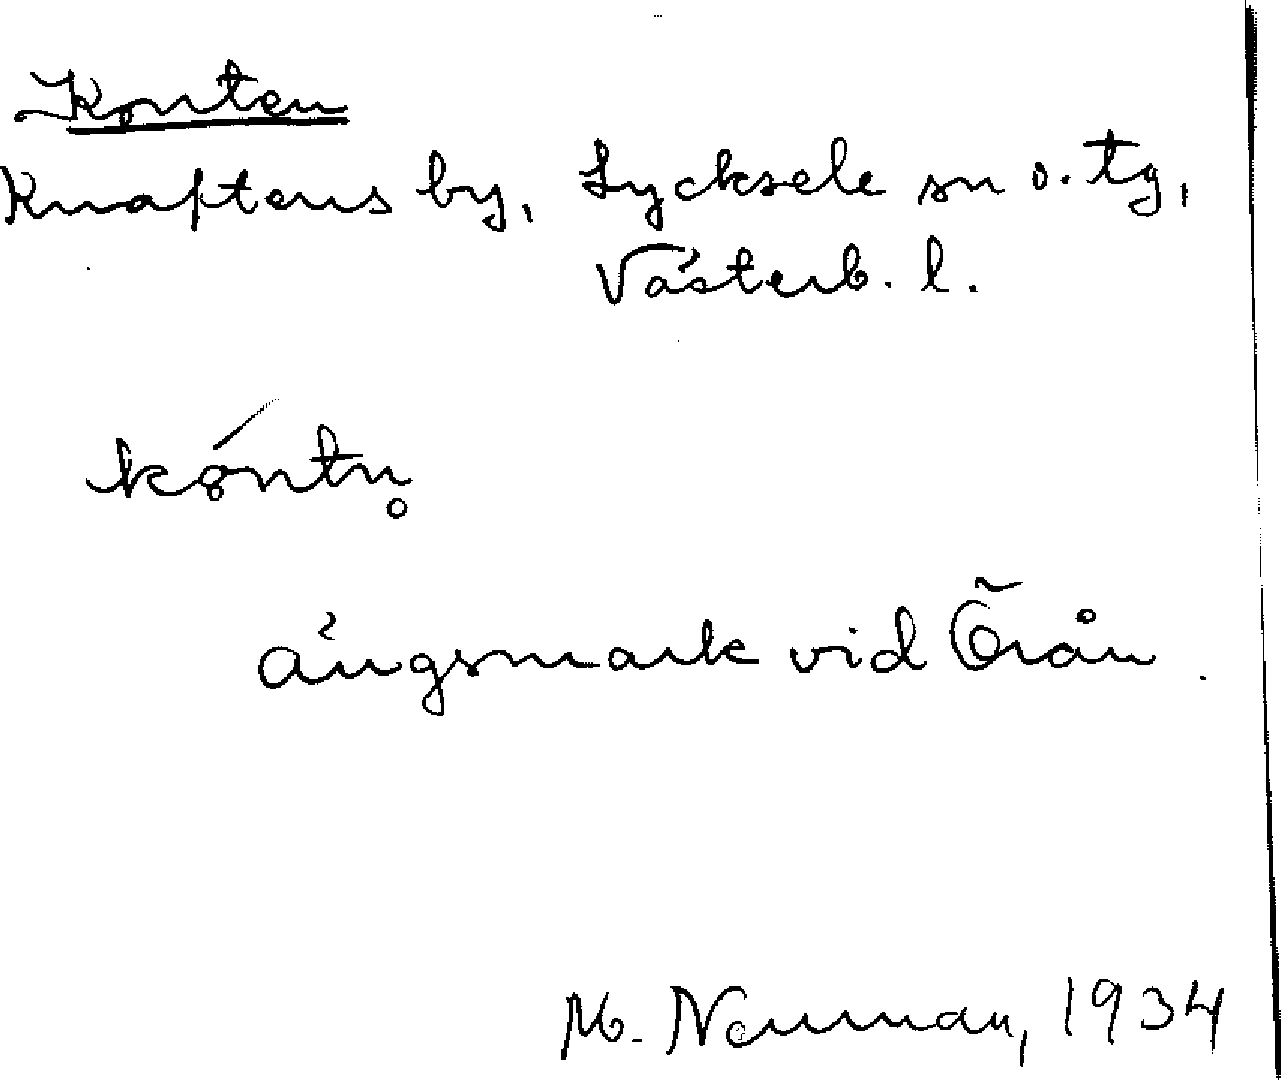 Konten
Knaftens by, Lycksele sn o. tg,
Västerb. l.
kǫ́ntn̥
ängsmark vid Örån.
M. Neuman, 1934